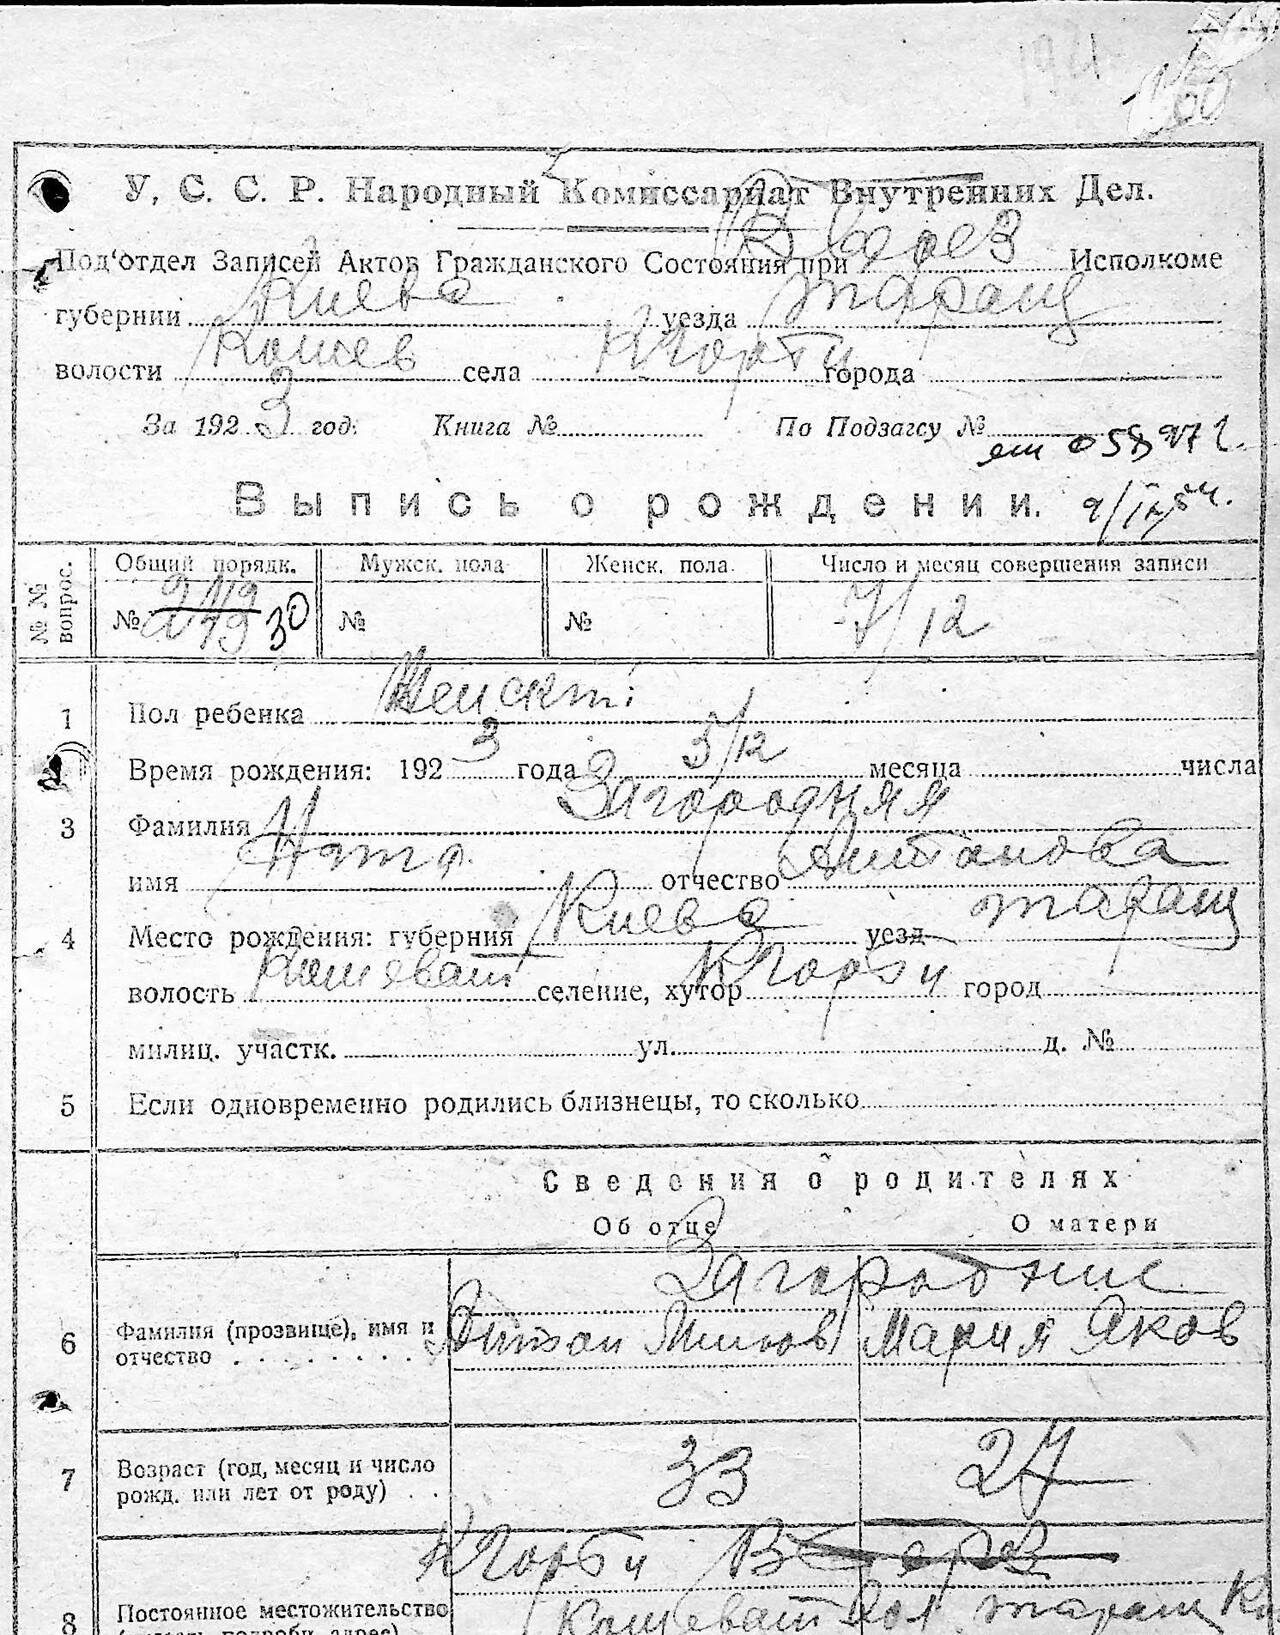 У. С. С. Р. Народный Комиссариат Внутренних Дел.
Под'отдел Записей Актов Гражданского Состояния при Исполкоме
губернии Киевс уезда таращ
волости Кошев села города
За 1923 год. Книга № По Подзагсу №
Выпись о рождении.
№ № вопрос. Общий порядк. Мужск. пола Женск. пола Число и месяц совершения записи
№ 30 № № 7/12
1 Пол ребенка
Время рождения: 1923 года 5/12 месяца числа
3 Фамилия Загородняя
имя отчество Антонова
4 Место рождения: губерния Киевс уезд таращ
волость Кошеват селение, хутор город
милиц. участк. ул. д. №
5 Если одновременно родились близнецы, то сколько
Сведения о родителях
Об отце О матери
Загородние
6 Фамилия (прозвище), имя и отчество Антон Мария Яков
7 Возраст (год, месяц и число рожд. или лет от роду) 33 27
8 Постоянное местожительство Кошеват вол таращ